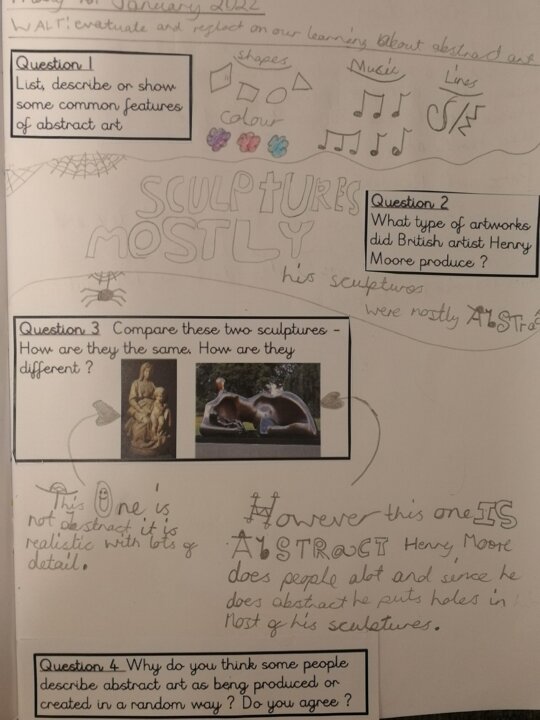 January 2022
WALT: evaluate and reflect on our learning about abstract art
Question 1
List, describe or show
some common features
of abstract art
Shapes
Music
Lines
Colour
SCULPtURES
MOSTLY
Question 2
What type of artworks
did British artist Henry
Moore produce ?
his sculptures
were mostly AbStra
Question 3 Compare these two sculptures –
How are they the same. How are they
different ?
This One is
not abstract it is
realistic with lots of
detail.
However this one IS
AbSTRaCT Henry Moore
does people alot and since he
does abstract he puts holes in
Most of his sculptures.
Question 4 Why do you think some people
describe abstract art as beng produced or
created in a random way ? Do you agree ?